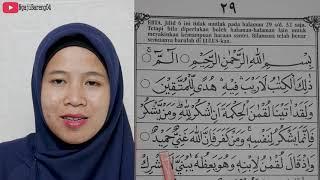 NgajiBareng04
٢٩
EBTA, Jilid 6 ini tidak mutlak pada halaman 29 s/d. 32 saja.
Tetapi bila diperlukan boleh halaman-halaman lain untuk
membuktikan kemampuan bacaan santri. Bilamana telah benar
sempurna barulah di LULUS-kan.
بِسْمِ اللهِ الرَّحْمٰنِ الرَّحِيْمِ الٓمّٓ
ذٰلِكَ الْكِتٰبُ لَارَيْبَ فِيْهِ هُدًى لِّلْمُتَّقِيْنَ
وَلَقَدْ اٰتَيْنَا لُقْمٰنَ الْحِكْمَةَ اَنِ اشْكُرْ لِلّٰهِ وَمَنْ يَّشْكُرْ
فَاِنَّمَا يَشْكُرُ لِنَفْسِهٖ وَمَنْ كَفَرَ فَاِنَّ اللهَ غَنِيٌّ حَمِيْدٌ
وَاِذْ قَالَ لُقْمٰنُ لِابْنِهٖ وَهُوَ يَعِظُهٗ يٰبُنَيَّ لَا تُشْرِكْ